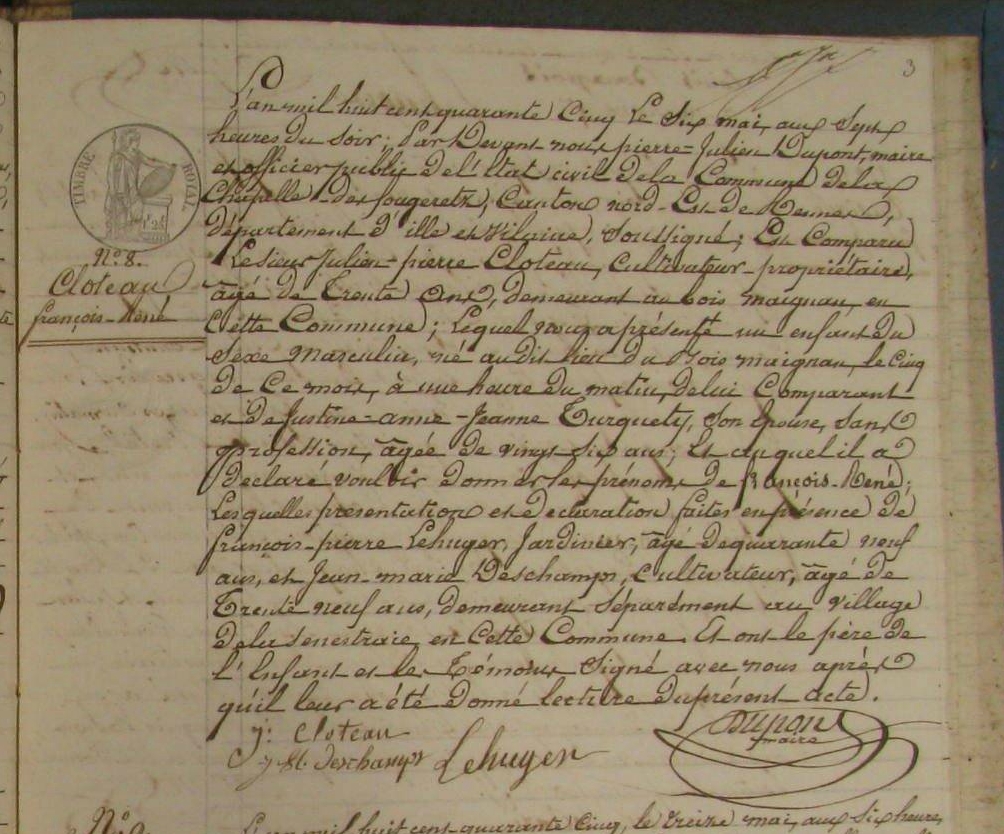 3
L'an mil huit cent quarante Cinq Le Six mai, aux Sept
heures du Soir; Par Devant nous pierre-Julien Dupont, maire
et officier public de l'Etat civil de la Commune de la
Chapelle-des fougeretz, Canton nord-Est de Rennes,
département d'ille et Vilaine, Soussigné; Est Comparu
TIMBRE ROYAL
Nº 8.
Cloteau
françois-René
Le Sieur Julien-pierre Cloteau, Cultivateur-propriétaire,
âgé de Trente Ans, demeurant au bois maignan, en
Cette Commune; Lequel nous a présenté un enfant du
Sexe masculin, né au dit lieu du Bois maignan, le Cinq
de Ce mois, à une heure du matin, de lui Comparant
et de Justine-anne-Jeanne Turquety, Son Epouse, Sans
profession, âgée de vingt Six ans; Et auquel il a
déclaré vouloir donner les prénoms de françois-René;
Lesquelles présentation et déclaration faites en présence de
françois-pierre Lehuger, Jardinier, âgé de quarante neuf
ans, et Jean-marie Deschamps, Cultivateur, âgé de
Trente neuf ans, demeurant Séparément au village
de la Senestraie, en Cette Commune. Et ont le père de
l'Enfant et les Témoins Signé avec nous après
qu'il leur a été donné lecture du présent acte.
j: Cloteau
DUPONT
maire
j M. deschamps Lehuger
Nº 9
L'an mil huit cent quarante Cinq, le treize mai, aux Six heures